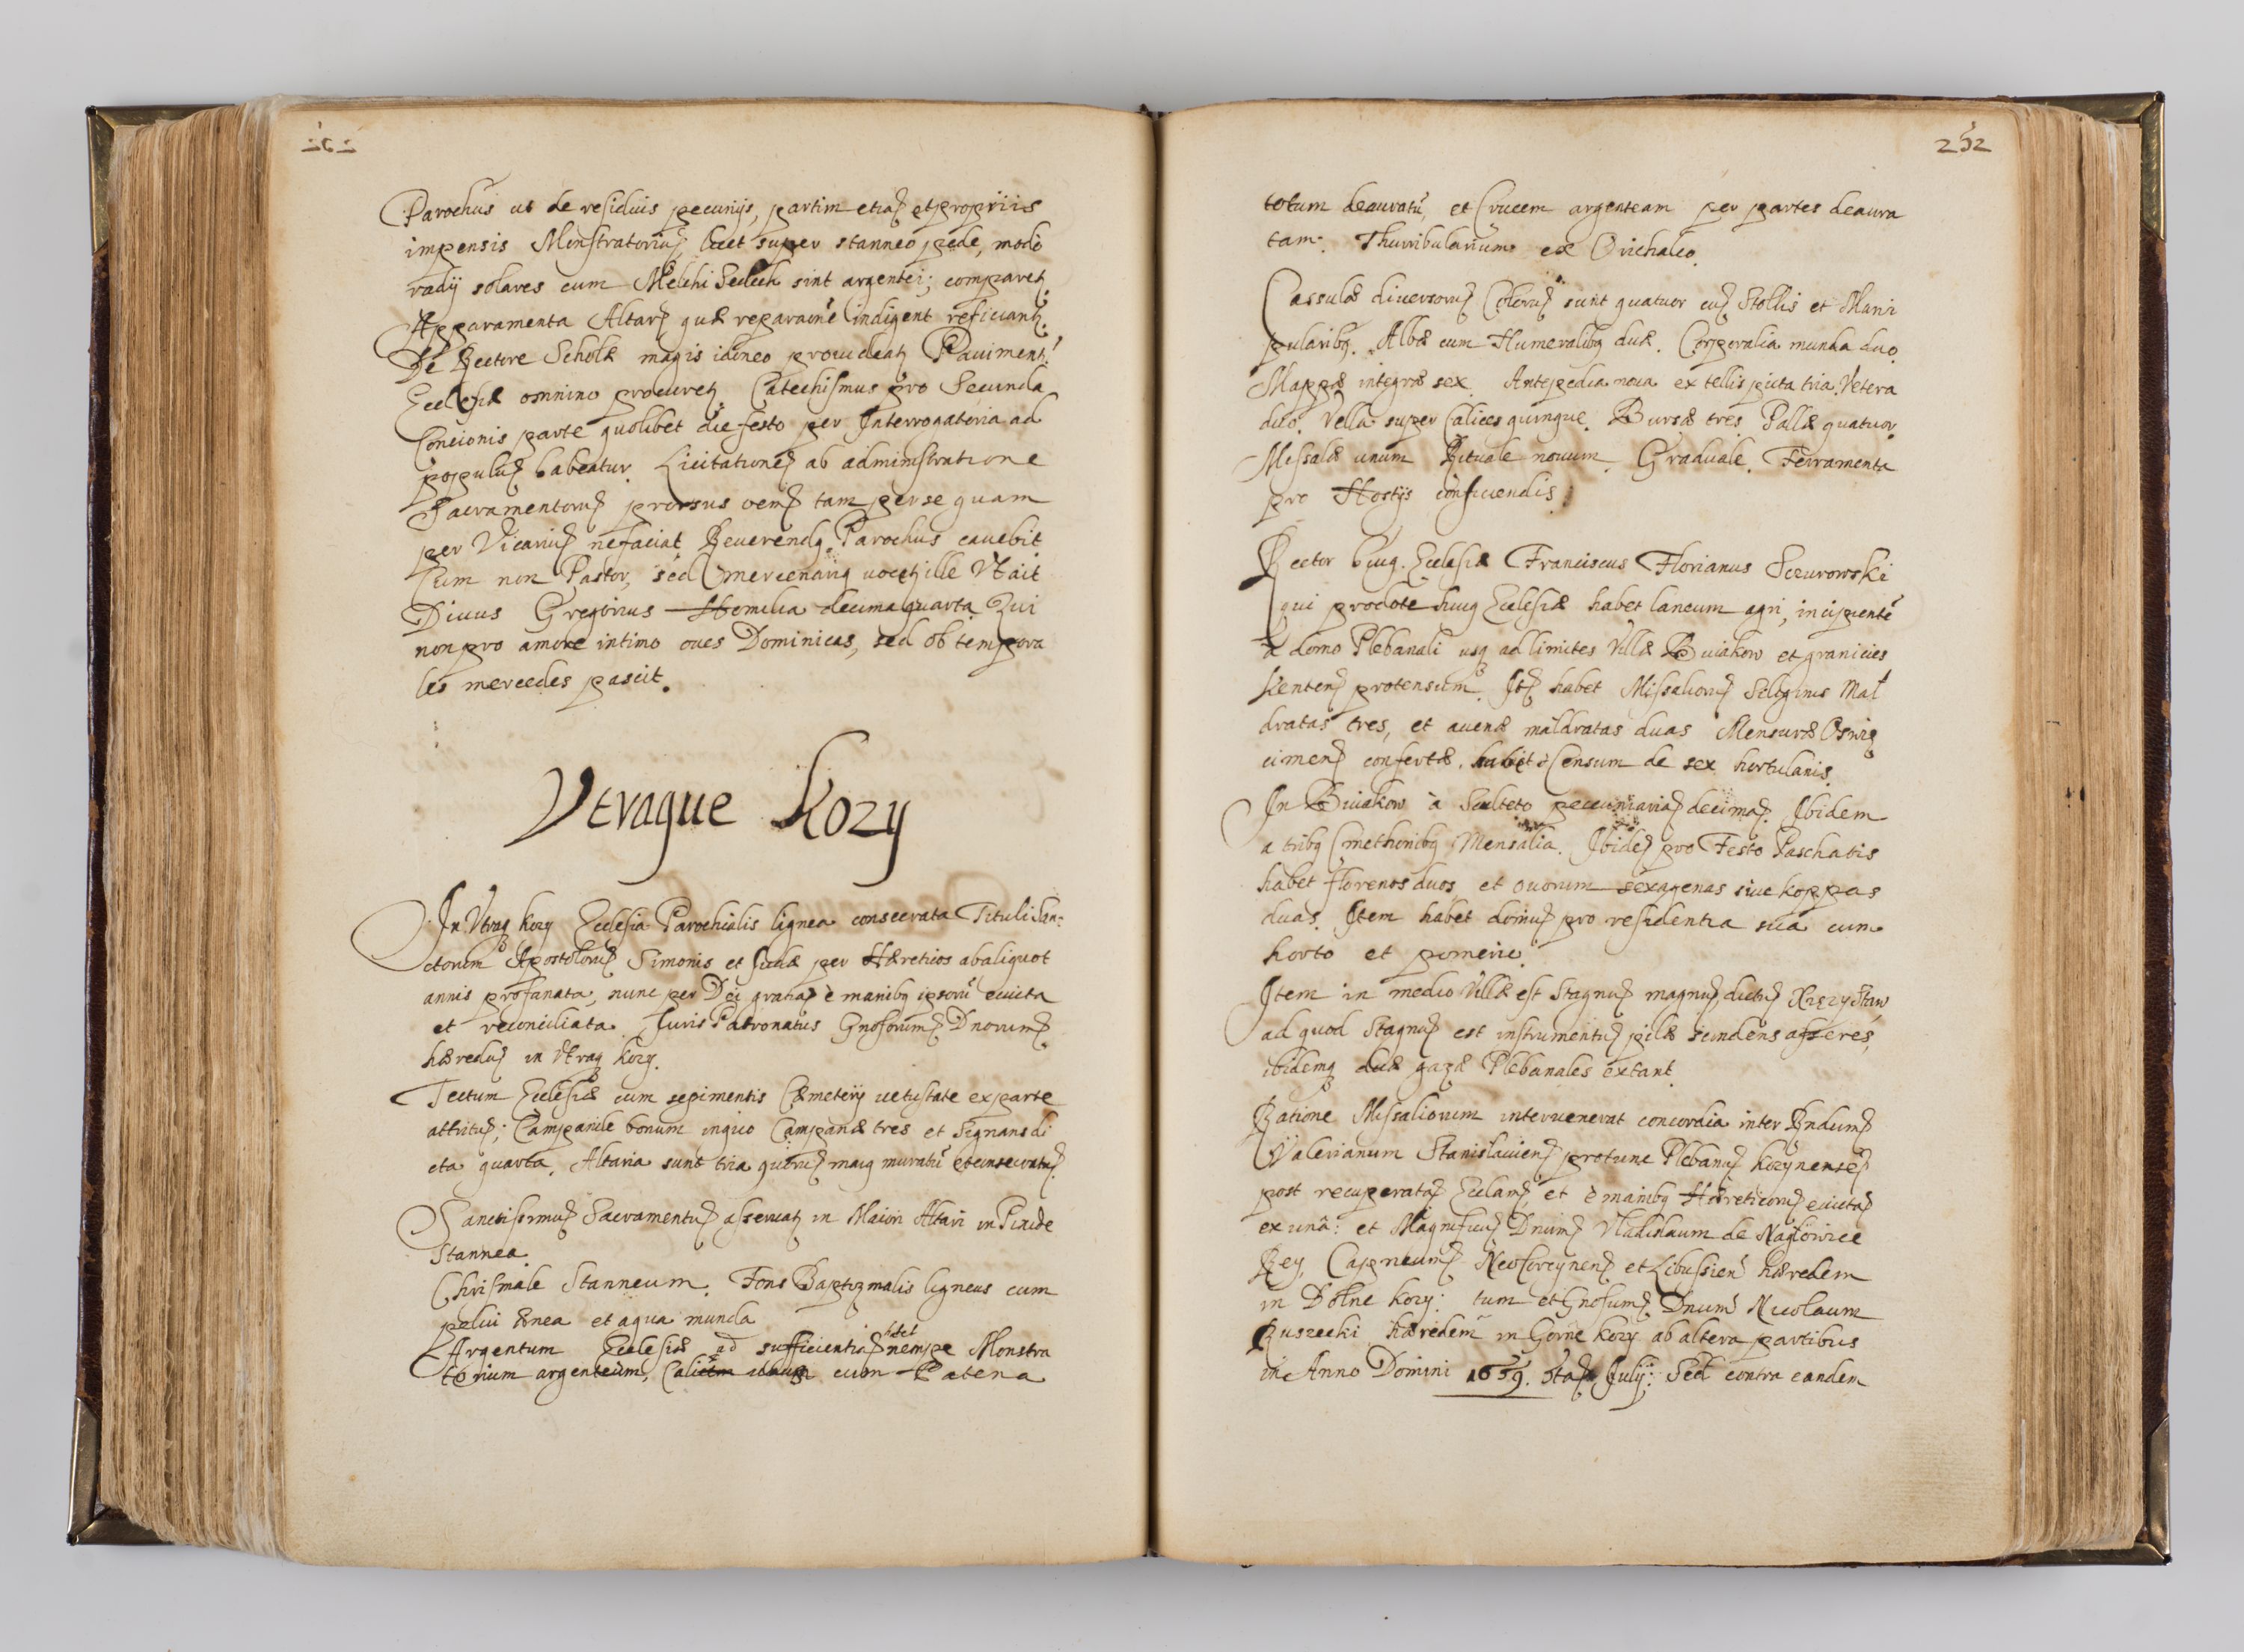 Parochus ut de residuis pecunijs, partim etiaꝫ et propriis
impensis Monstratoriuꝫ, licet super stanneo pede, modo
radij solares cum Melchisedech sint argentei; comparetꝫ.
Apparamenta Altarꝫ quæ reparaõne indigent reficiantꝫ.
De Rectore Scholæ magis idoneo prouideatꝫ Paviment.
Ecclesiæ omnino procuretꝫ Catechismus pro Secunda
Concionis parte quolibet die festo per Interrogatoria ad
populuꝫ habeatur. Licitationeꝫ ab administratione
Sacramentoruꝫ prorsus oemꝫ tam per se quam
per Vicariuꝫ ne faciat Reuerendꝰ Parochus cauebit
Cum non Pastor, sed mercenariꝰ uocetꝫ ille Vt ait
Diuus Gregorius Homilia decima quarta Qui
non pro amore intimo oues Dominicas, sed ob tempora
les mercedes pascit.
Vtraque Kozy
In Vtraqꝫ Kozy Ecclesia Parochialis lignea consecrata Tituli San-
ctorum Apostoloruꝫ Simonis et Judæ per Hæreticos ab aliquot
annis profanata, nunc per Dei gratiaꝫ è manibꝫ ipsorũ euicta
et reconciliata. Juris Patronatus Gnosorumꝫ Dnorumꝫ
hæreduꝫ in Vtraqꝫ Kozy.
Tectum Ecclesiæ cum sepimentis Cæmeterij uetustate ex parte
attrituꝫ; Campanile bonum in quo Campanæ tres et Signans di
cta quarta. Altaria sunt tria quoruꝫ maiꝰ muratũ et consecratuꝫ.
Sanctissimuꝫ Sacramentuꝫ asseruatꝫ in Maiori Altari in Pixide
Stannea.
Chrismale Stanneum. Fons Baptizmalis ligneus cum
pelui ænea et aqua munda
Argentum Ecclesiæ ad sufficientiaꝫ habet nempe Monstra
torium argenteum, Calicem cum Patena
232
totum deauratũ, et Crucem argenteam per partes deaura
tam. Thurribularium ex Orichalco.
Cassulæ diuersoruꝫ Coloruꝫ sunt quatuor cuꝫ Stollis et Mani
pularibꝫ. Albæ cum Humeralibꝫ duæ. Corporalia munda duo.
Mappæ integræ sex. Antepedia noua ex tellis picta tria. Vetera
duo. Vella super Calices quinque. Bursæ tres Pallæ quatuor.
Missale unum Rituale nouum. Graduale. Ferramenta
pro Hostijs conficiendis.
Rector huiꝰ. Ecclesiæ Franciscus Florianus Scurowski
qui pro dote huiꝰ Ecclesiæ habet laneum agri, incipientẽ
à domo Plebanali usqꝫ ad limites Villæ Buiakow et granicies
Kentenꝫ protensum. Itꝫ habet Missalioruꝫ Siliginis Mal
dratas tres, et auenæ maldratas duas Mensuræ Oswie
cimenꝫ confertæ. habet Censum de sex hortulanis.
In Buiakow à Sculteto pecuniariaꝫ decimaꝫ. Ibidem
a tribꝫ Cmethonibꝫ Mensalia. Ibideꝫ pro Festo Paschatis
habet florenos duos et ouorum sexagenas siue koppas
duas. Item habet domuꝫ pro residentia sua cum
horto et pomerio.
Item in medio Villæ est Stagnuꝫ magnuꝫ, dictuꝫ
ad quod Stagnuꝫ est instrumentuꝫ pilæ scindens asseres,
ibidemqꝫ duæ gazæ Plebanales extant.
Ratione Missaliorum interuenerat concordia inter Rndumꝫ
Valerianum Stanislauienꝫ protunc Plebanuꝫ Kozynenseꝫ
post recuperataꝫ Ecclamꝫ et è manibꝫ Hæreticoruꝫ euictaꝫ
ex unâ: et Magnificuꝫ Dnumꝫ Vladislaum de Naglowice
Rey, Capneumꝫ Neoforeynenꝫ et Libussienꝫ hæredem
in Dolne Kozy: tum et Gnosumꝫ Dnumꝫ Nicolaum
Ruszecki hæredem in Gorne Kozy ab altera partibus
in Anno Domini 1659. 5taꝫ Julij: Sed contra eandem